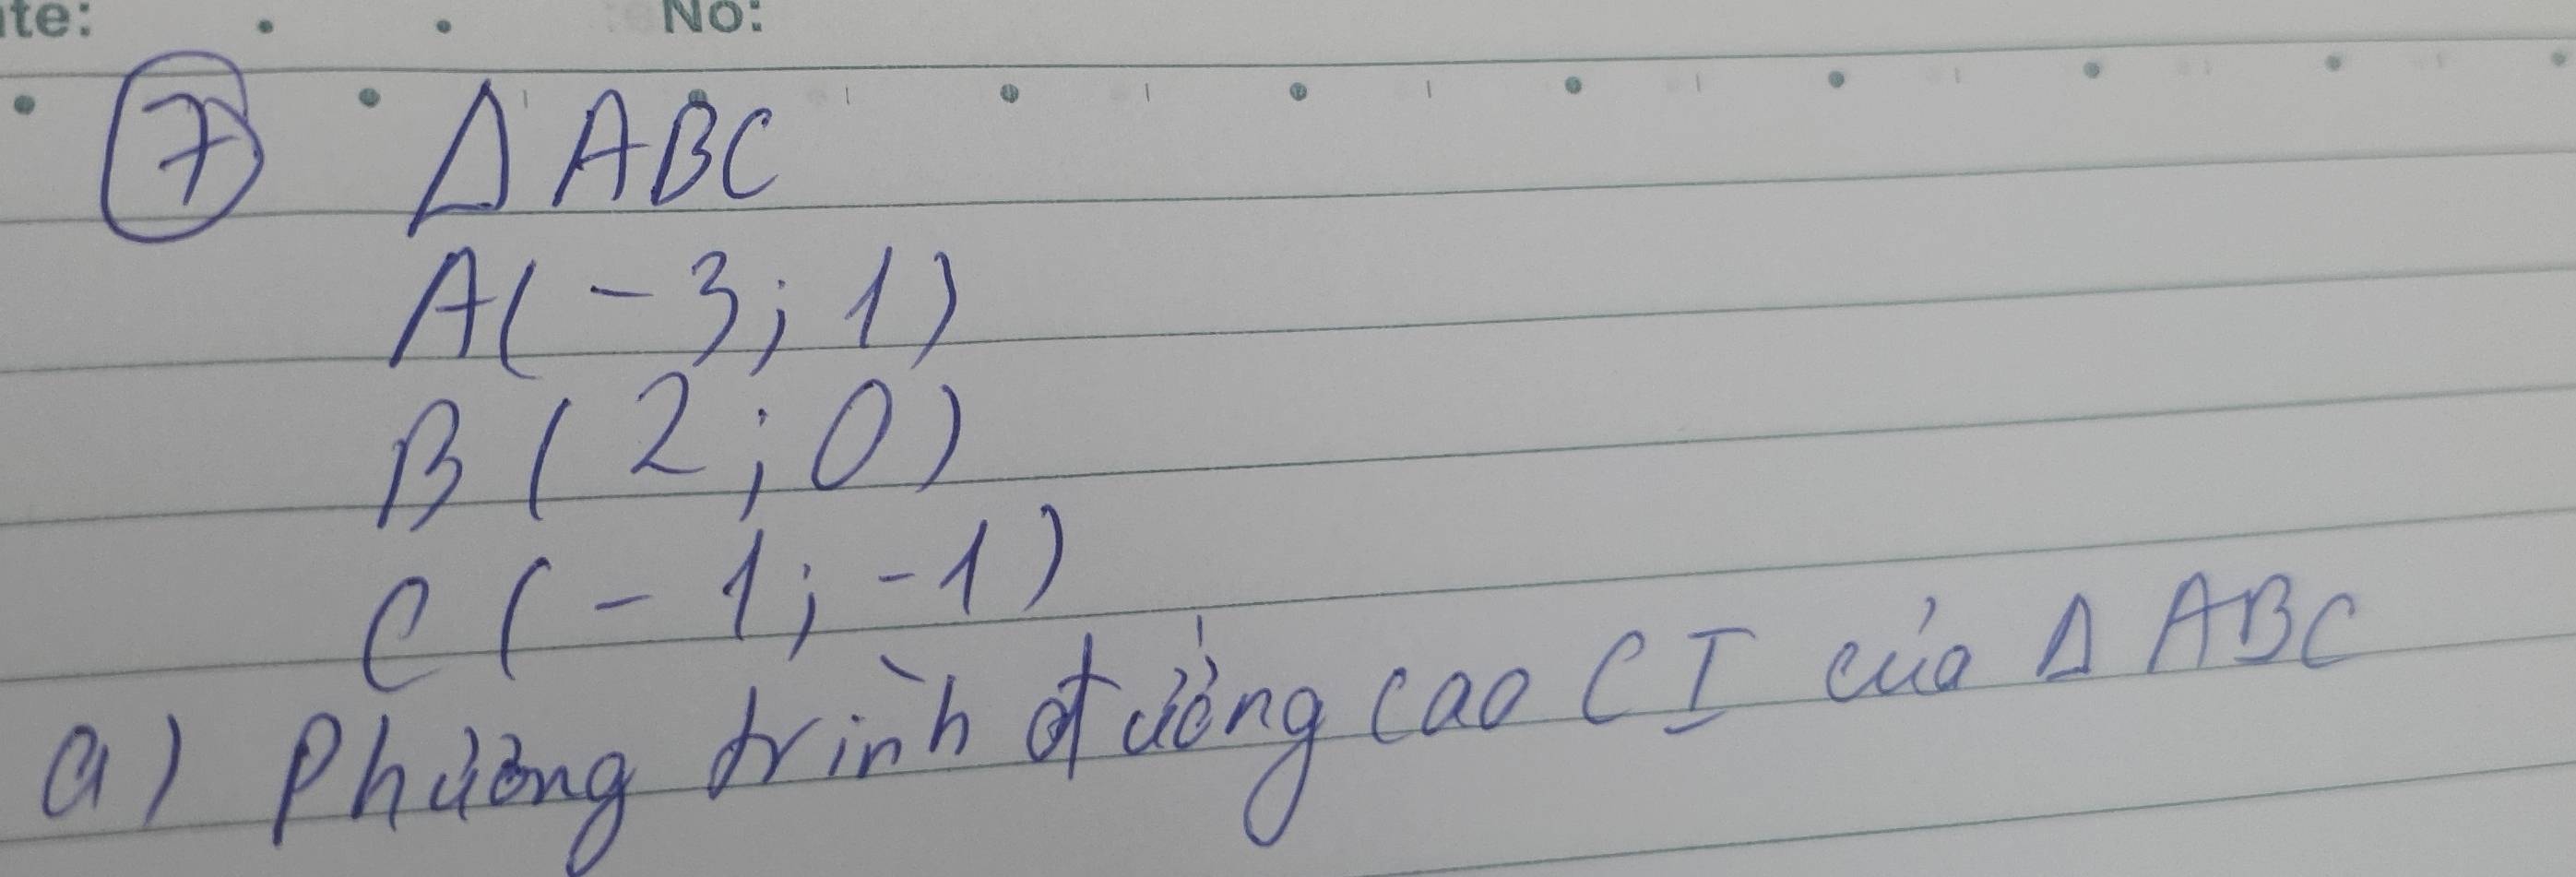 te: No:
7 Δ ABC
A(-3; 1)
B(2; 0)
C(-1; -1)
a) Phương trình đường cao CI của Δ ABC